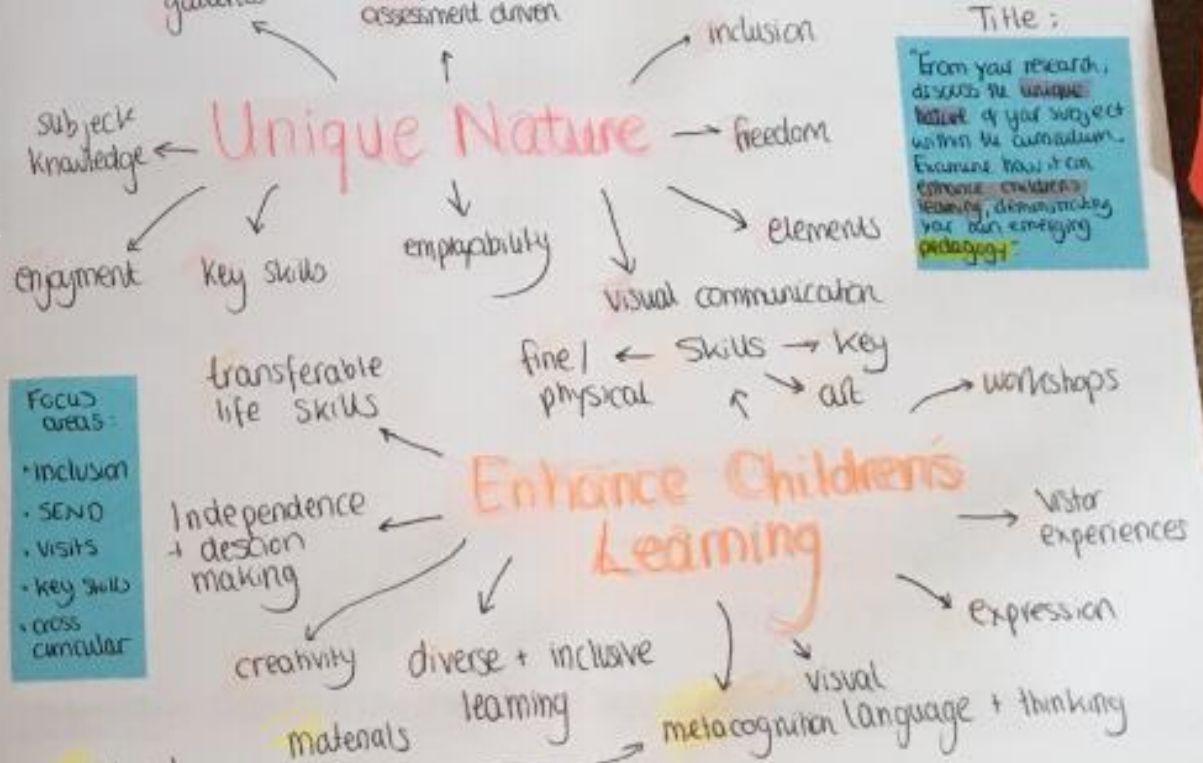 assessment driven
inclusion
Title:
"From your research,
discuss the unique
nature of your subject
within the curriculum.
Examine how it can
enhance children's
learning, demonstrating
your own emerging
pedagogy"
subject
knowledge
Unique Nature
freedom
elements
enjoyment
key skills
employability
visual communication
transferable
life skills
fine/
physical
skills
key
art
workshops
Focus
areas:
• inclusion
• SEND
• visits
• key skills
• cross
curricular
Enhance Children's
Learning
Independence
+ descion
making
vistor
experiences
expression
creativity
diverse + inclusive
learning
visual
language + thinking
metacognition
materials